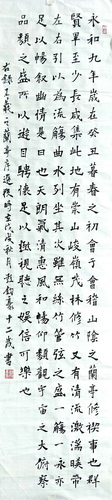 永和九年歲在癸丑暮春之初會于會稽山陰之蘭亭修稧事也群
賢畢至少長咸集此地有崇山峻嶺茂林修竹又有清流激湍映帶
左右引以為流觴曲水列坐其次雖無絲竹管弦之盛一觴一詠亦
足以暢敘幽情是日也天朗氣清惠風和暢仰觀宇宙之大俯察
品類之盛所以遊目騁懷足以極視聽之娛信可樂也
右錄王羲之蘭亭序選段時在戊戌秋月趙豪十二歲書